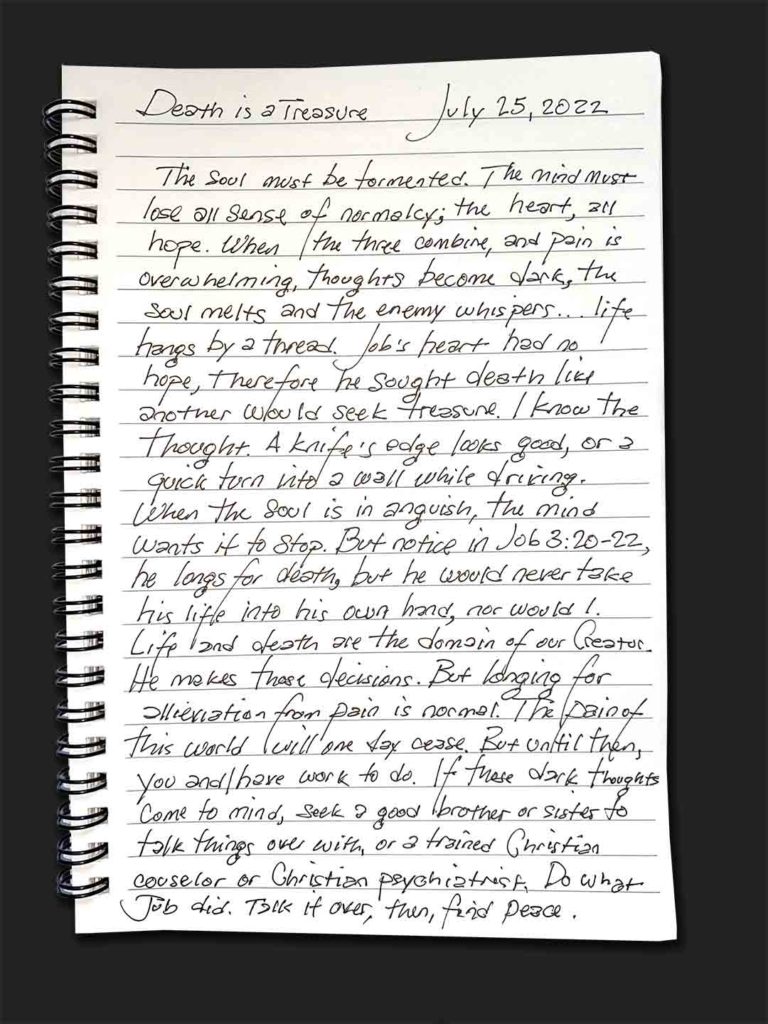 Death is a Treasure July 25, 2022
The Soul must be tormented. The mind must
lose all sense of normalcy; the heart, all
hope. When the three combine, and pain is
overwhelming, thoughts become dark, the
soul melts and the enemy whispers... life
hangs by a thread. Job's heart had no
hope, therefore he sought death like
another would seek treasure. I know the
thought. A knife's edge looks good, or a
quick turn into a wall while driving.
When the soul is in anguish, the mind
wants it to stop. But notice in Job 3:20-22,
he longs for death, but he would never take
his life into his own hand, nor would I.
Life and death are the domain of our Creator.
He makes those decisions. But longing for
allieviation from pain is normal. The pain of
this world will one day cease. But until then,
you and I have work to do. If these dark thoughts
come to mind, seek a good brother or sister to
talk things over with, or a trained Christian
couselor or Christian psychiatrist. Do what
Job did. Talk it over, then, find peace.